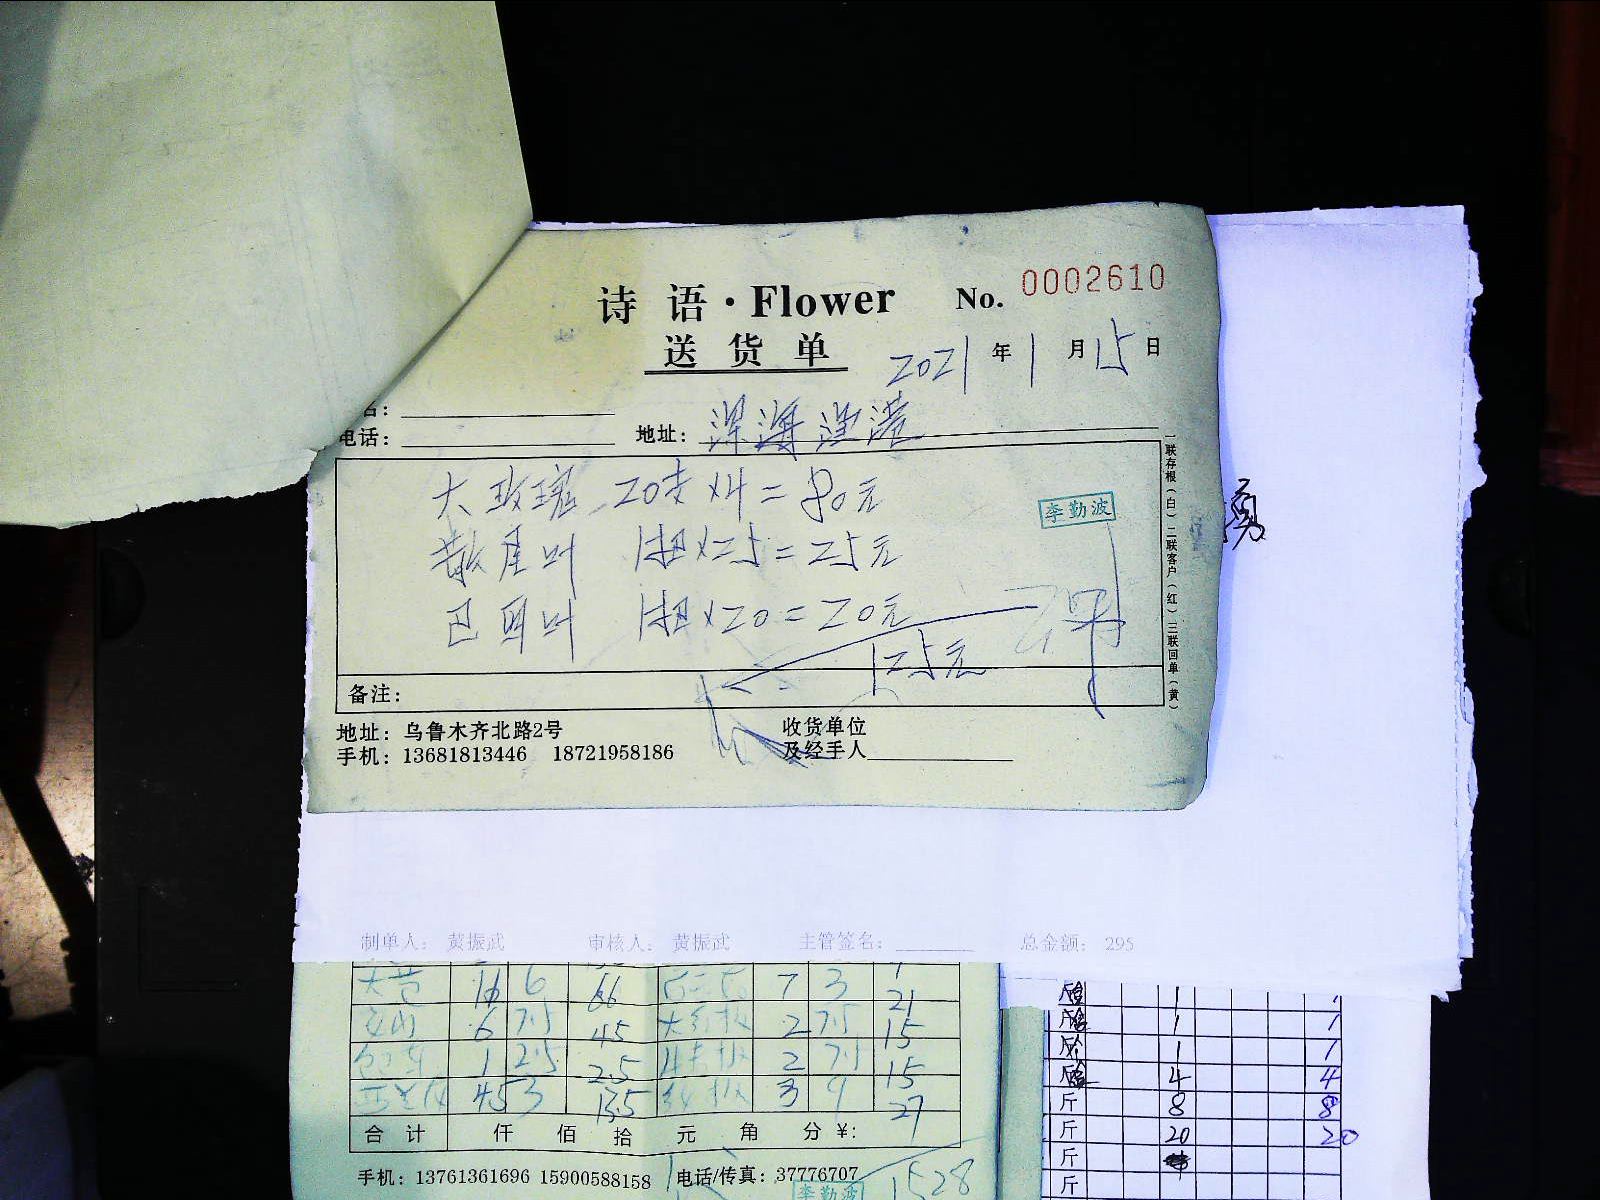 诗语·Flower No. 0002610
送货单 2021年1月15日
名：
电话： 地址：深海渔港
大玫瑰 20支×4=80元
散尾叶 1扎×25=25元
巴西叶 1扎×20=20元
125元
李勤波
备注：
一联存根（白）二联客户（红）三联回单（黄）
地址：乌鲁木齐北路2号 收货单位
手机：13681813446 18721958186 及经手人
制单人：黄振武 审核人：黄振武 主管签名： 总金额：295
6 66 7 3 21
6 7.5 45 2 7.5 15
1 2.5 2.5 2 7.5 15
45 3 13.5 3 9 27
合计 仟 佰 拾 元 角 分 ¥:
手机：13761361696 15900588158 电话/传真：37776707
李勤波 1528
1 1
1 1
1 1
4 4
斤 8 8
斤 20 20
斤
斤